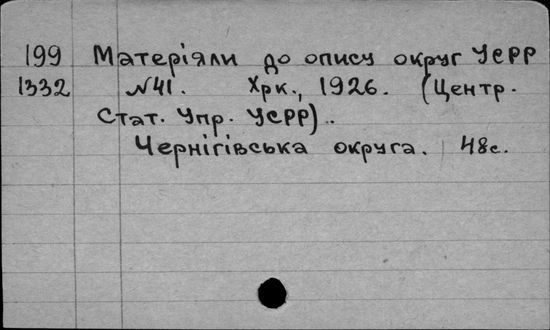 199 Матеріяли до опису округ УСРР
1332 №41. Хрк., 1926. (Центр.
Стат. Упр. УСРР)..
Чернігівська округа. 48с.